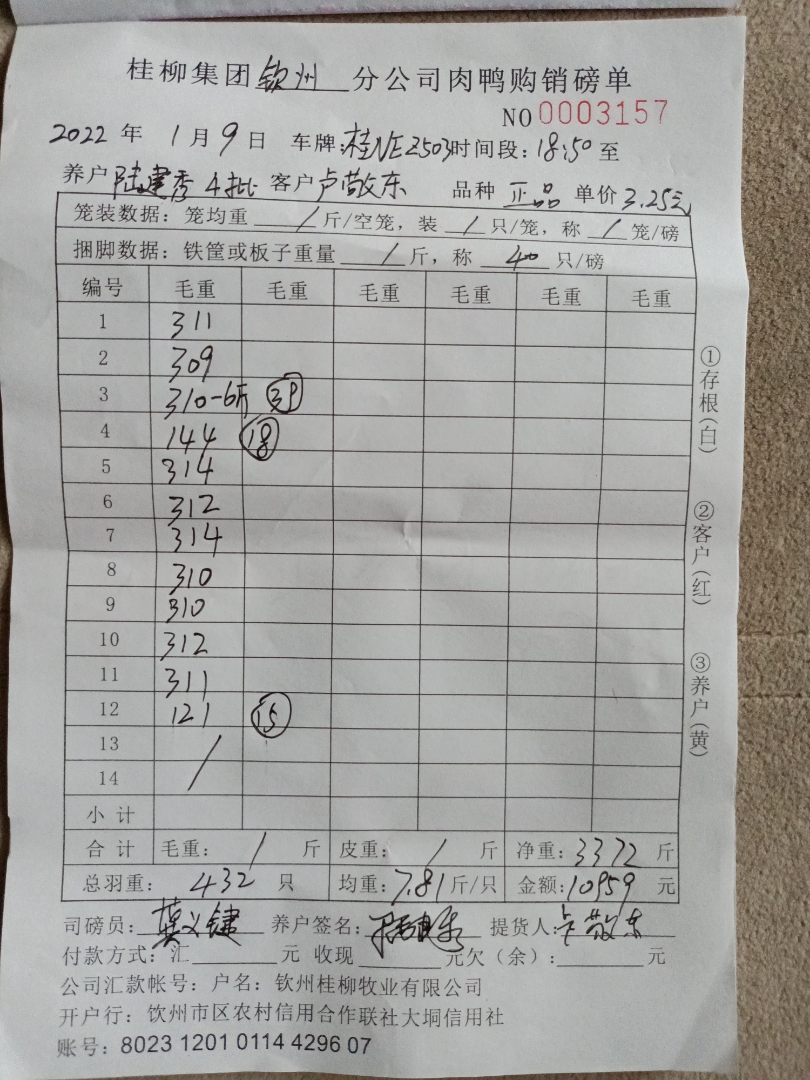 桂柳集团钦州分公司肉鸭购销磅单
NO 0003157
2022年1月9日 车牌:桂NEZ503 时间段:18:50至
养户陆建秀 4批 客户卢敬东 品种 正品 单价3.25元
笼装数据: 笼均重 / 斤/空笼, 装 / 只/笼, 称 / 笼/磅
捆脚数据: 铁筐或板子重量 / 斤, 称 40 只/磅
编号 毛重 毛重 毛重 毛重 毛重 毛重
1 311
2 309
3 310-6斤 39
4 144 18
5 314
6 312
7 314
8 310
9 310
10 312
11 311
12 121 15
13 /
14
小计
合计 毛重: / 斤 皮重: / 斤 净重:3372斤
总羽重: 432 只 均重:7.81斤/只 金额:10959元
司磅员: 莫义键 养户签名: 提货人:卢敬东
付款方式:汇 元 收现 元欠(余): 元
公司汇款帐号: 户名: 钦州桂柳牧业有限公司
开户行: 钦州市区农村信用合作联社大垌信用社
账号: 8023 1201 0114 4296 07
①存根(白)
②客户(红)
③养户(黄)